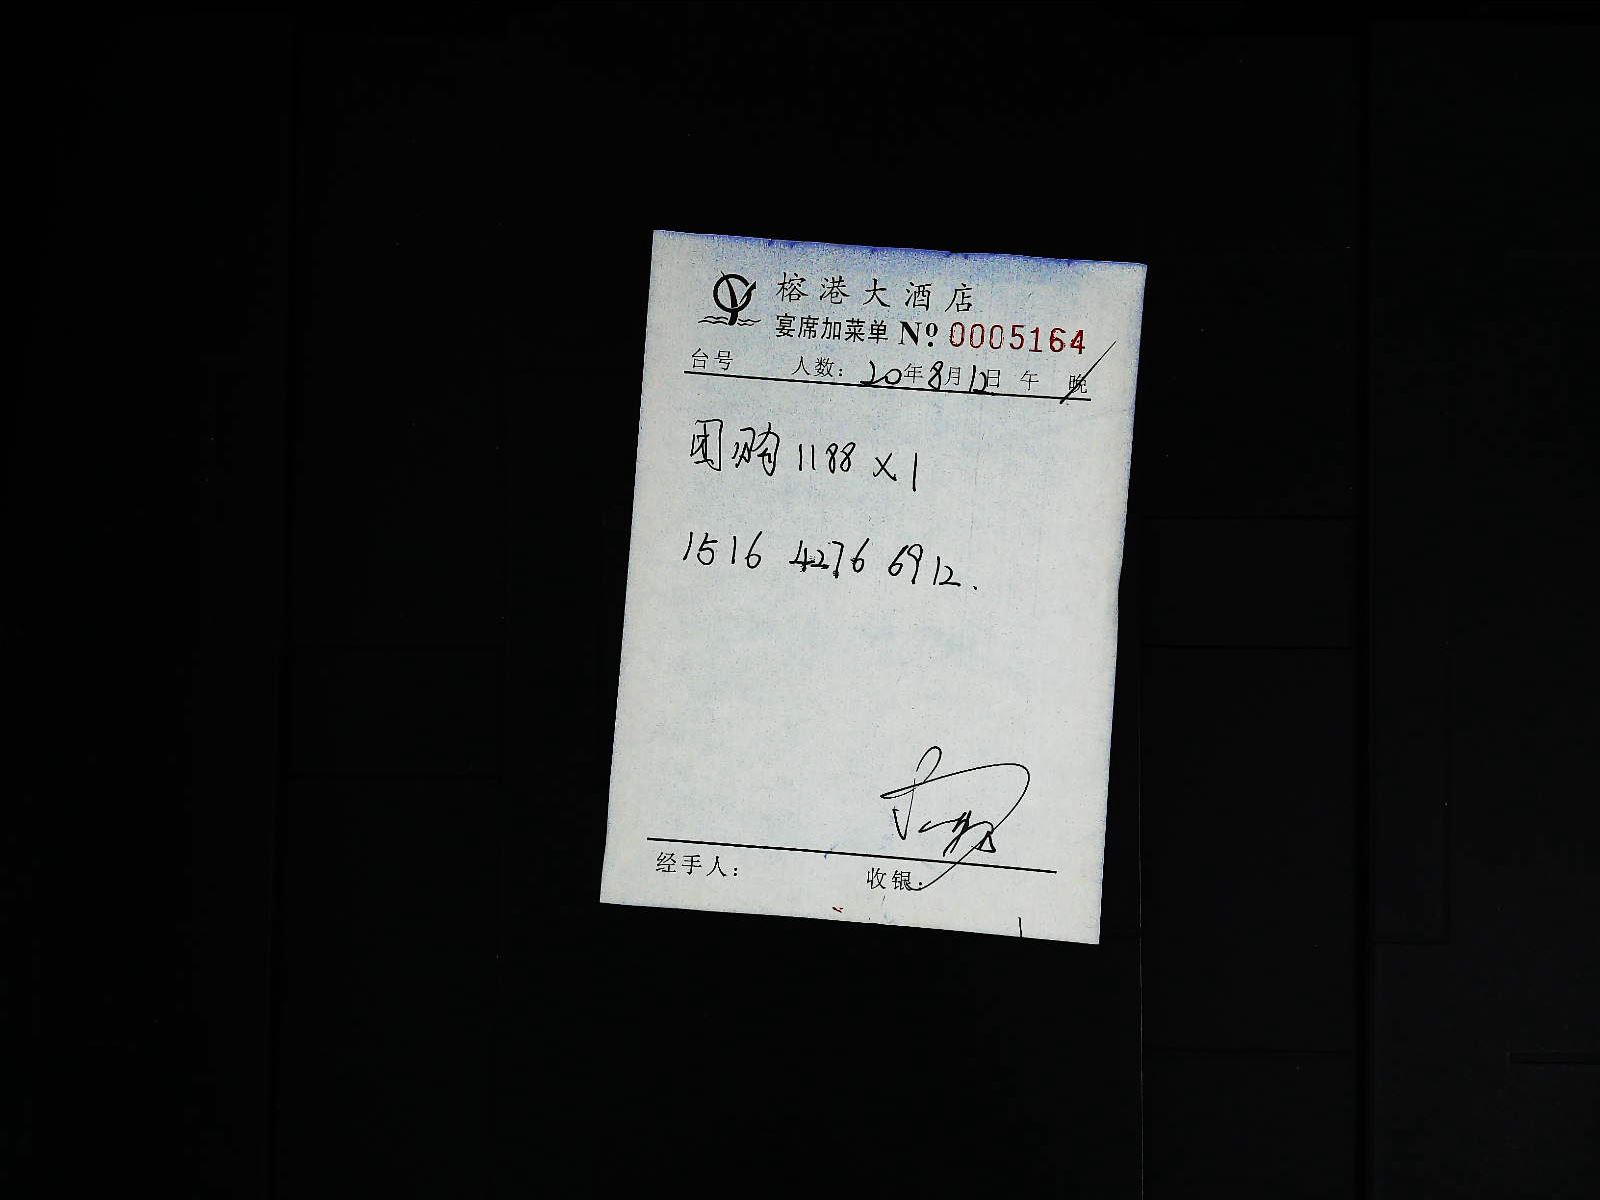 榕港大酒店
宴席加菜单 Nº 0005164
台号 人数: 20年8月12日 午 晚
团购 1188 × 1
1516 4276 6912.
经手人: 收银: